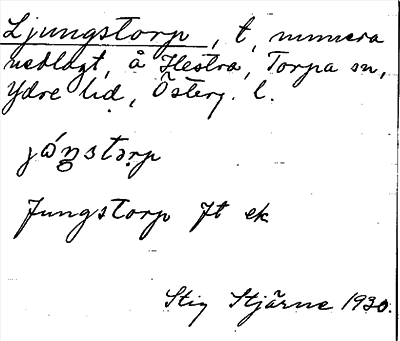 Ljungstorp, t, numera
nedlagt, å Hestra, Torpa sn,
Ydre hd, Österg. l.
jóŋstorp
Jungstorp Jt ek
Stig Stjärne 1930.